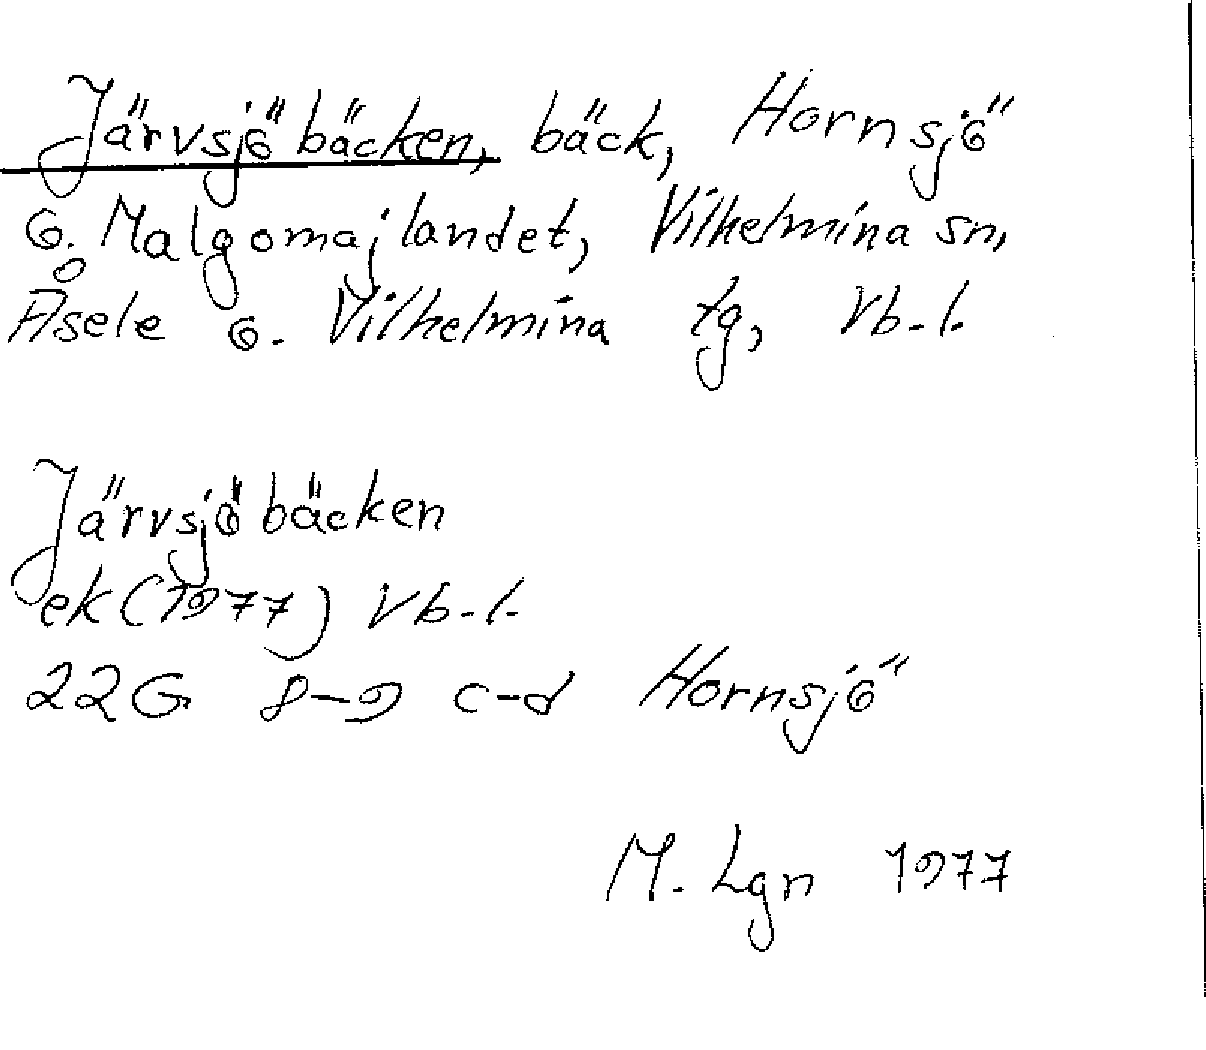 Järvsjöbäcken, bäck, Hornsjö
o. Malgomajlandet, Vilhelmina sn,
Åsele o. Vilhelmina tg, Vb-l.
Järvsjöbäcken
ek(1977) Vb-l.
22G 8-9 c-d Hornsjö
M. Lgn 1977